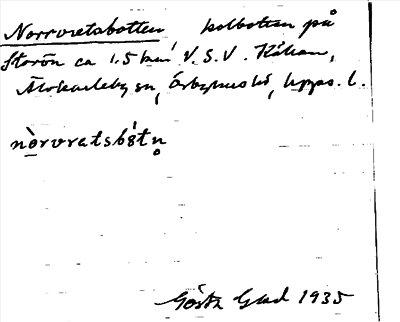 Norrvretsbotten kolbotten på
Storön ca 1.5 km V.S.V. Kålsan,
Älvkarleby sn, Örbyhus hd, Upps. l.
nòrvratsbótn
Gösta Grad 1935